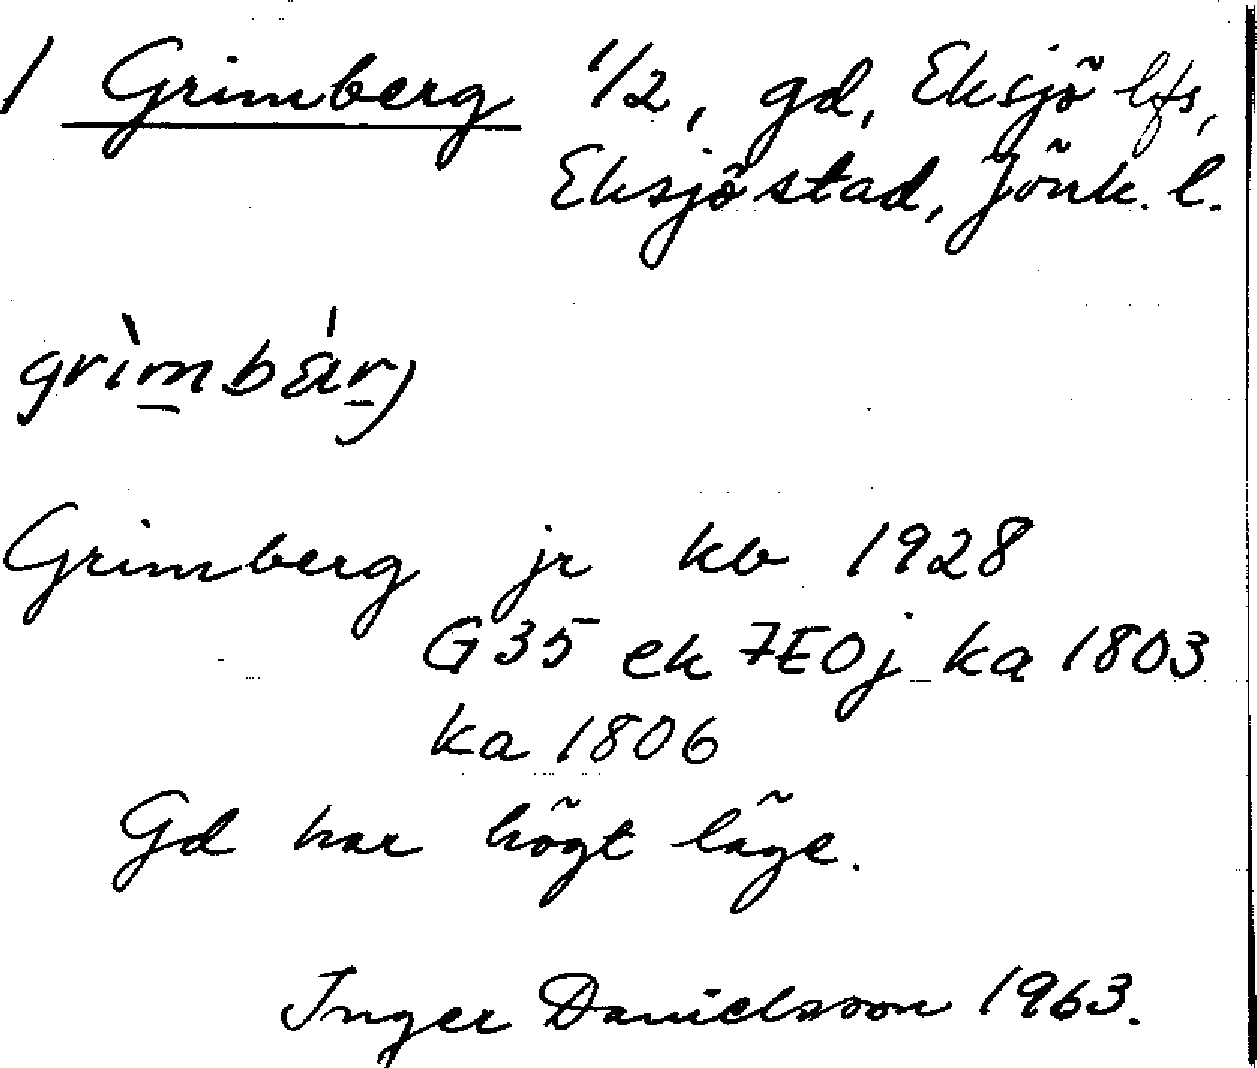 / Grimberg 1/2, gd, Eksjö lfs,
Eksjö stad, Jönk. l.
grìmbárj
Grimberg jr kb 1928
G35 ek 7E0j ka 1803
ka 1806
Gd har högt läge.
Inger Danielsson 1963.